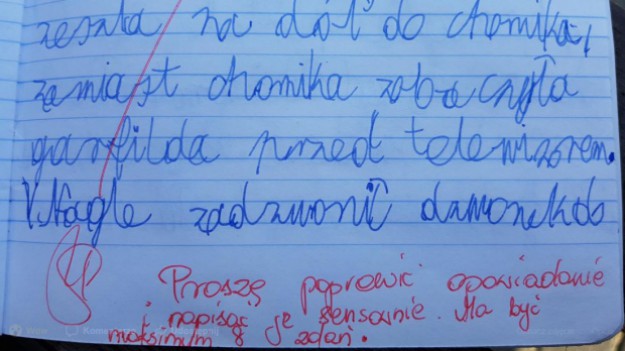 zeszła na dół do chomika,
zamiast chomika zobaczyła
garfilda przed telewizorem.
Nagle zadzwonił dzwonek do
Proszę poprawić opowiadanie
i napisać je sensownie. Ma być
maksimum 8 zdań.